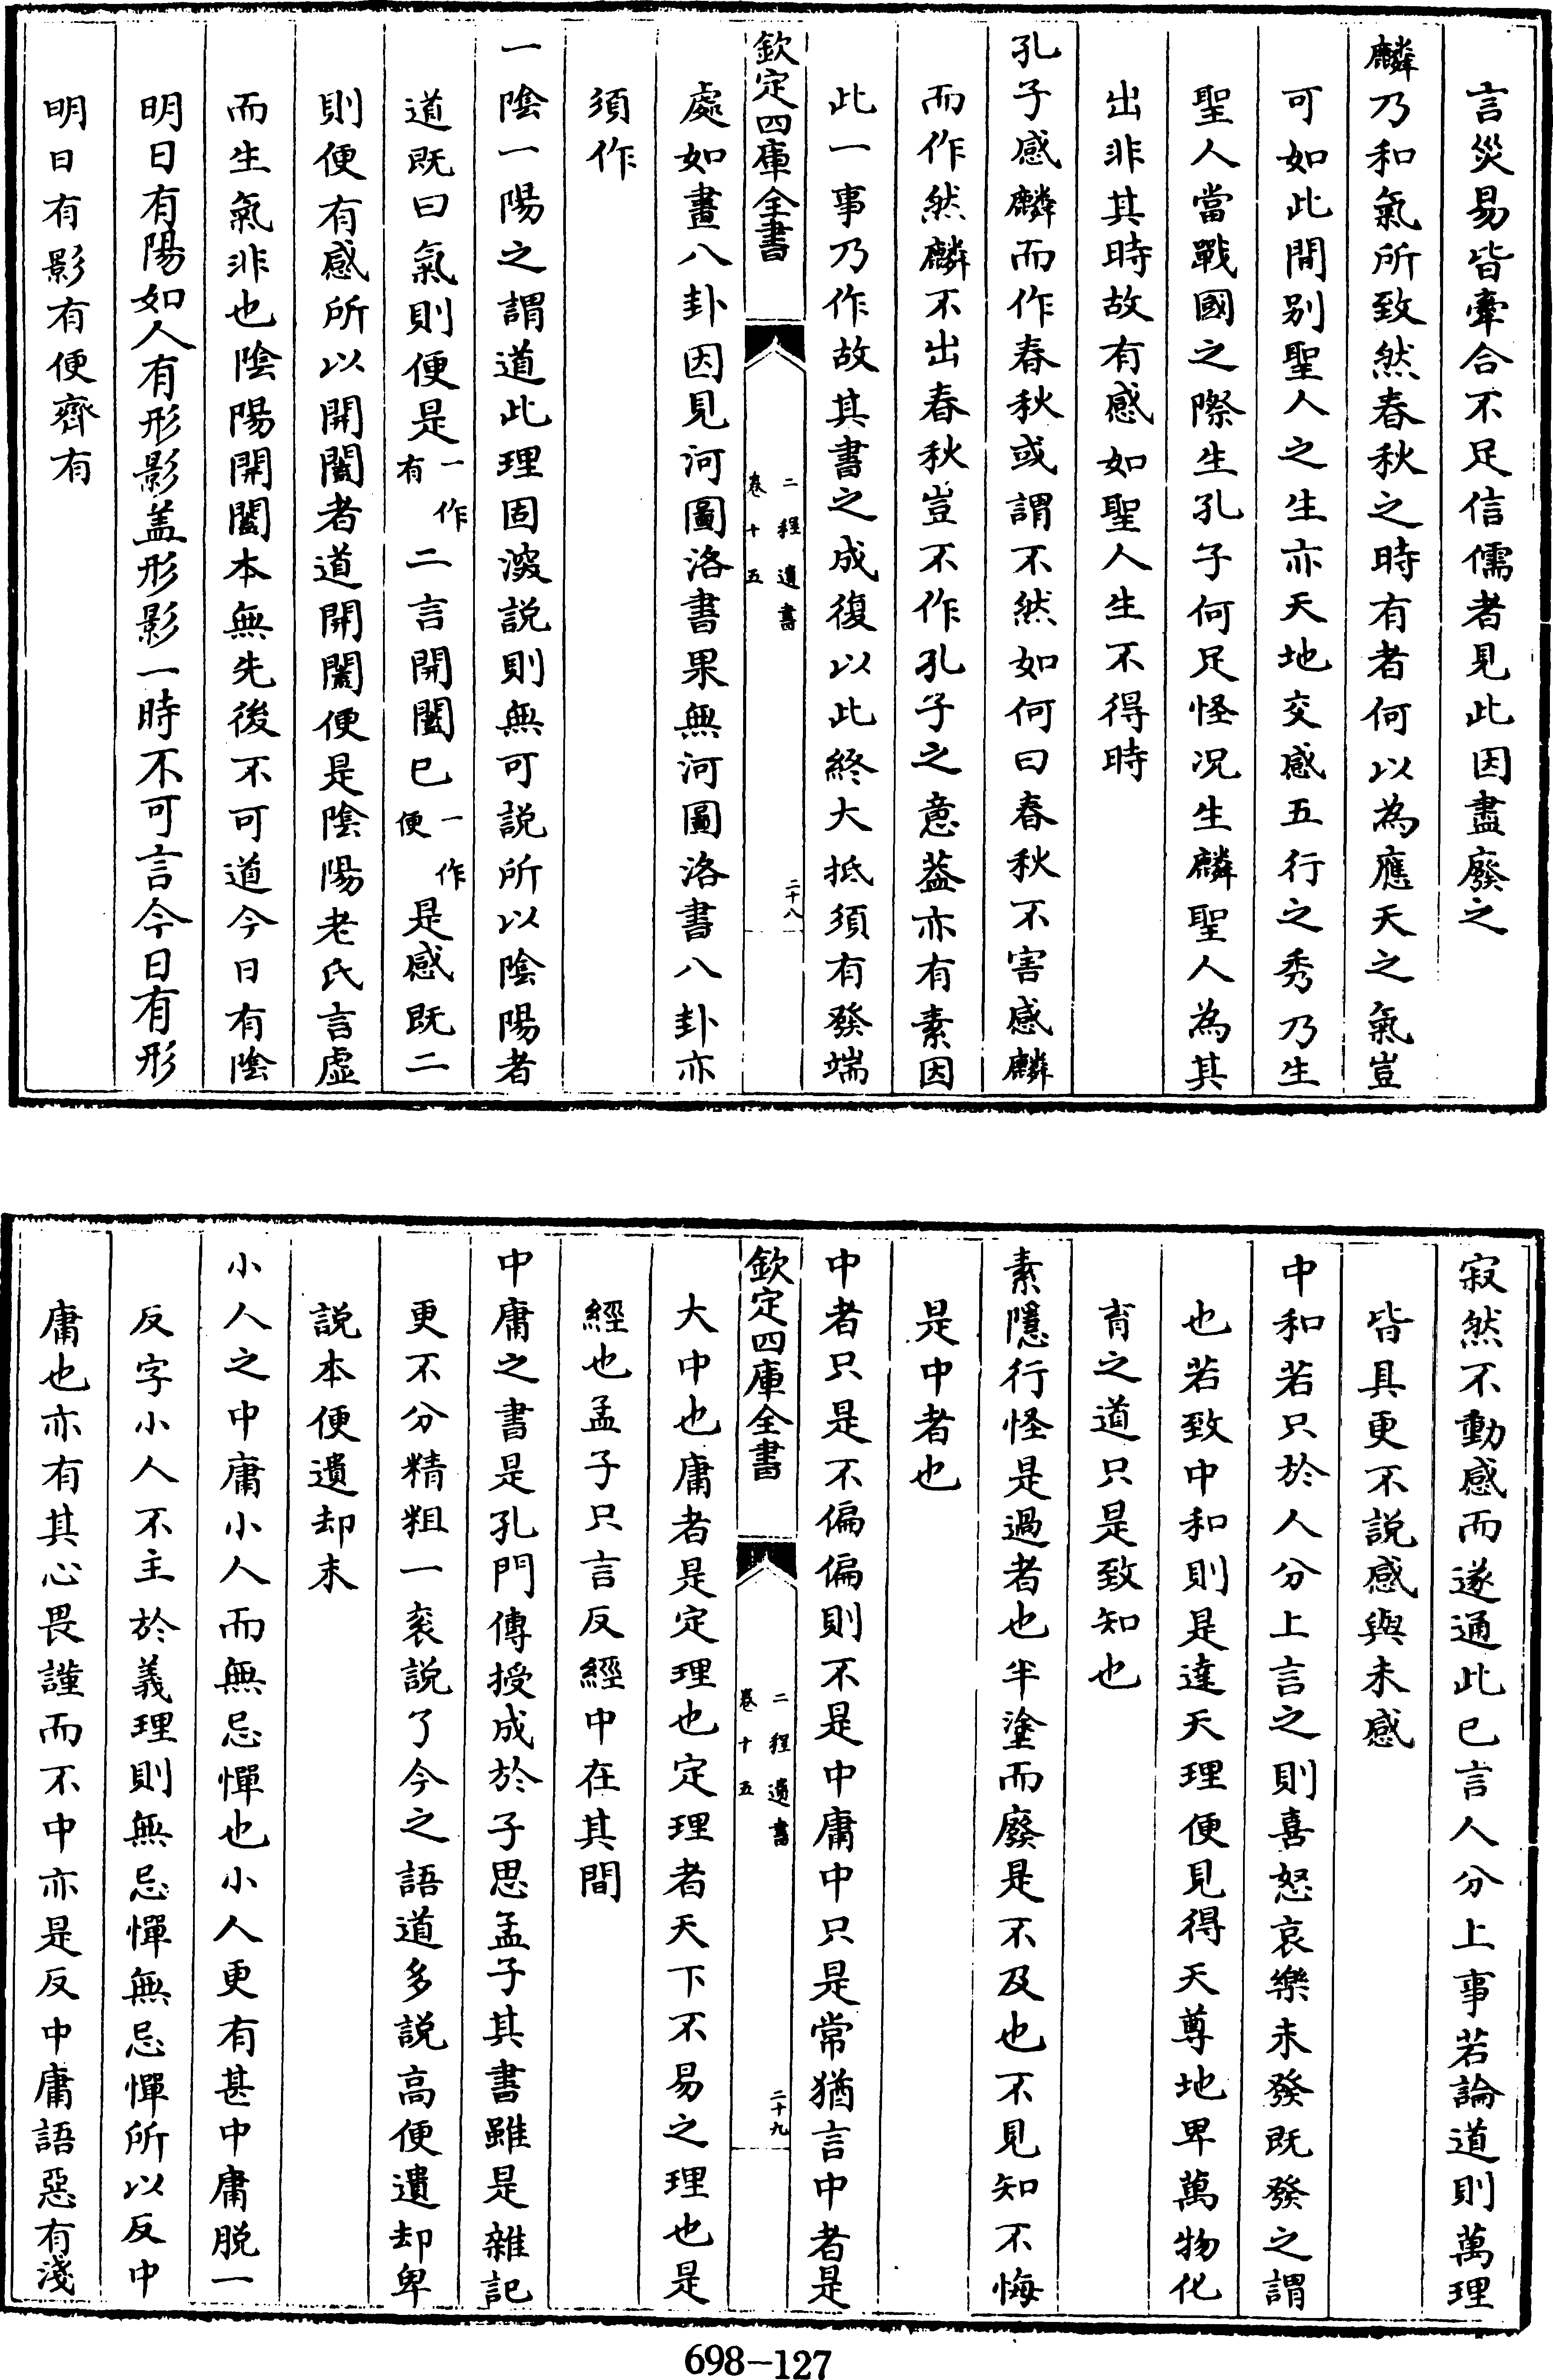 言災易皆牽合不足信儒者見此因盡廢之
麟乃和氣所致然春秋之時有者何以為應天之氣豈
可如此間别聖人之生亦天地交感五行之秀乃生
聖人當戰國之際生孔子何足怪况生麟聖人為其
出非其時故有感如聖人生不得時
孔子感麟而作春秋或謂不然如何曰春秋不害感麟
而作然麟不出春秋豈不作孔子之意葢亦有素因
此一事乃作故其書之成復以此終大抵須有發端
欽定四庫全書
二程遺書
卷十五
二十八
處如畫八卦因見河圖洛書果無河圖洛書八卦亦
須作
一陰一陽之謂道此理固深説則無可説所以陰陽者
道既曰氣則便是一作有二言開闔已一作便是感既二
則便有感所以開闔者道開闔便是陰陽老氏言虚
而生氣非也陰陽開闔本無先後不可道今日有陰
明日有陽如人有形影盖形影一時不可言今日有形
明日有影有便齊有
寂然不動感而遂通此已言人分上事若論道則萬理
皆具更不説感與未感
中和若只於人分上言之則喜怒哀樂未發既發之謂
也若致中和則是達天理便見得天尊地卑萬物化
育之道只是致知也
素隱行怪是過者也半塗而廢是不及也不見知不悔
是中者也
中者只是不偏偏則不是中庸中只是常猶言中者是
欽定四庫全書
二程遺書
卷十五
二十九
大中也庸者是定理也定理者天下不易之理也是
經也孟子只言反經中在其間
中庸之書是孔門傳授成於子思孟子其書雖是雜記
更不分精粗一衮説了今之語道多説高便遺却卑
説本便遺却末
小人之中庸小人而無忌憚也小人更有甚中庸脱一
反字小人不主於義理則無忌憚無忌憚所以反中
庸也亦有其心畏謹而不中亦是反中庸語惡有淺
698-127